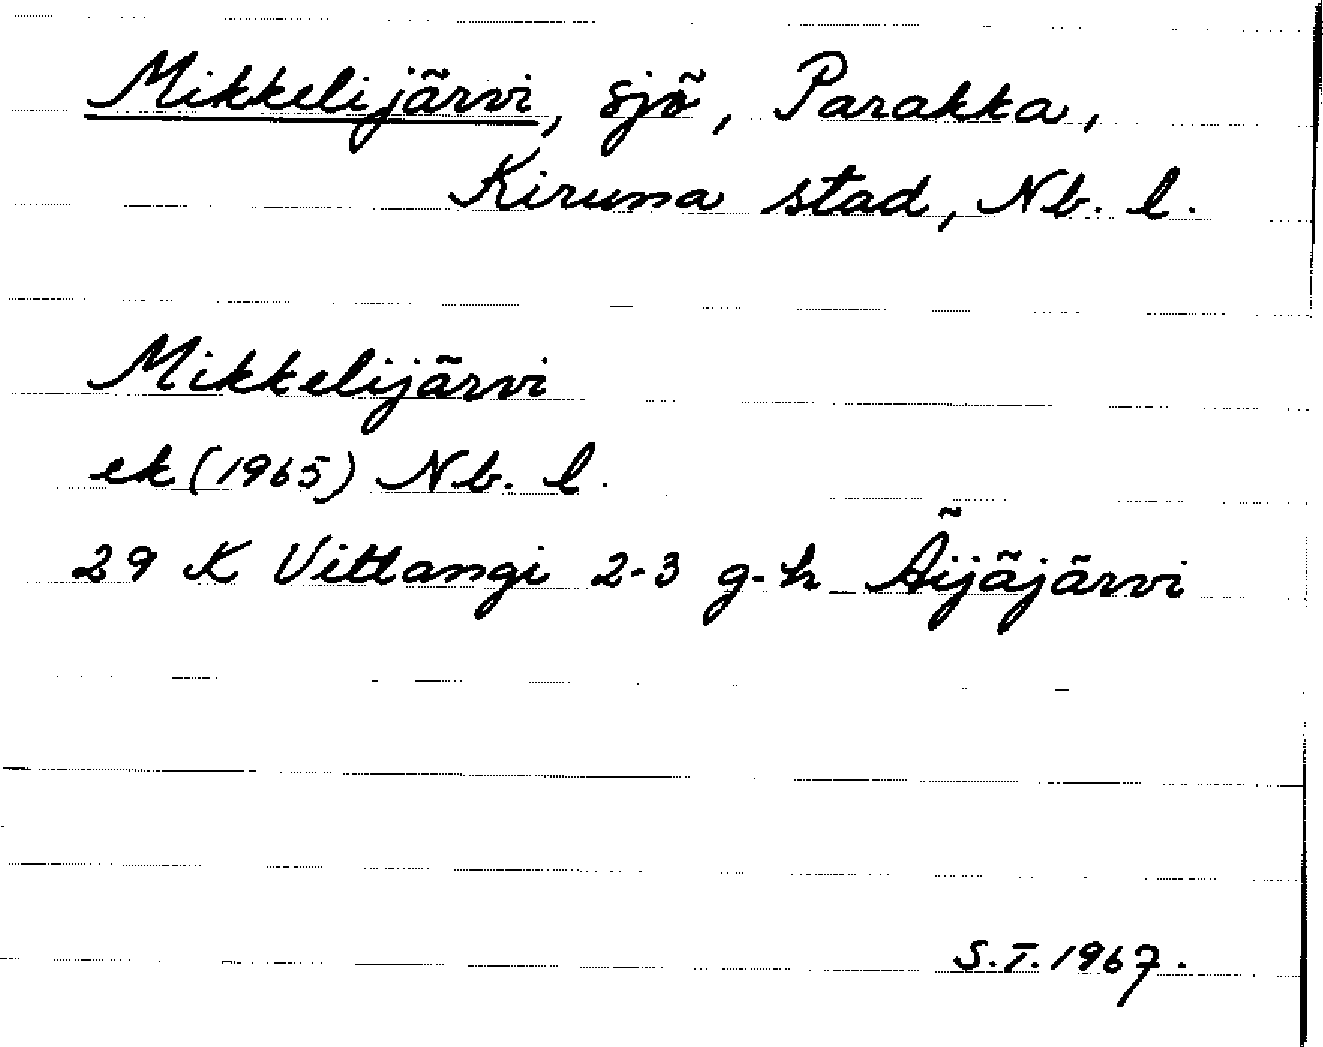 Mikkelijärvi, sjö, Parakka,
Kiruna stad, Nb. l.
Mikkelijärvi
ek (1965) Nb. l.
29 K Vittangi 2-3 g-h Äijäjärvi
S.T. 1967.